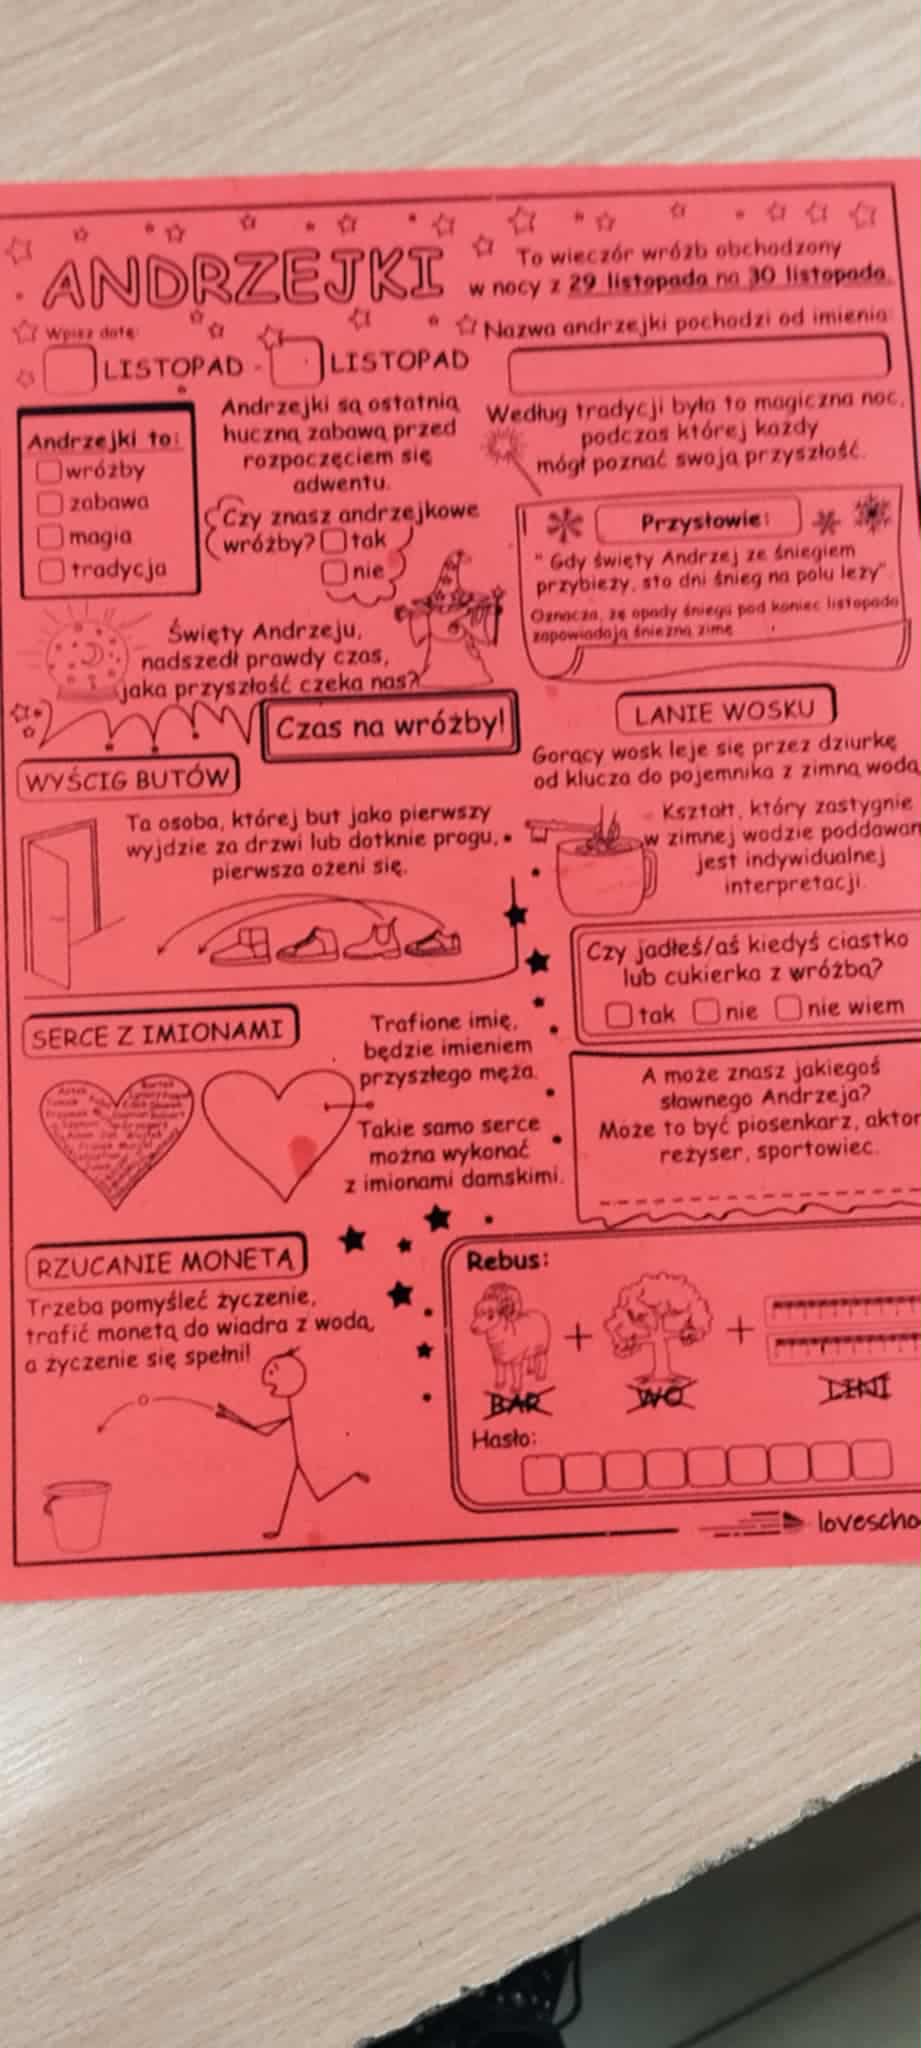 ANDRZEJKI
To wieczór wróżb obchodzony
w nocy z 29 listopada na 30 listopada.
Wpisz datę:
LISTOPAD - LISTOPAD
Nazwa andrzejki pochodzi od imienia:
Andrzejki to:
wróżby
zabawa
magia
tradycja
Andrzejki są ostatnią
huczną zabawą przed
rozpoczęciem się
adwentu.
Według tradycji była to magiczna noc,
podczas której każdy
mógł poznać swoją przyszłość.
Czy znasz andrzejkowe
wróżby? tak
nie
Przysłowie:
" Gdy święty Andrzej ze śniegiem
przybieży, sto dni śnieg na polu leży".
Oznacza, że opady śniegu pod koniec listopada
zapowiadają śnieżną zimę
Święty Andrzeju,
nadszedł prawdy czas,
jaka przyszłość czeka nas?
Czas na wróżby!
WYŚCIG BUTÓW
Ta osoba, której but jako pierwszy
wyjdzie za drzwi lub dotknie progu,
pierwsza ożeni się.
LANIE WOSKU
Gorący wosk leje się przez dziurkę
od klucza do pojemnika z zimną wodą
Kształt, który zastygnie
w zimnej wodzie poddawan
jest indywidualnej
interpretacji.
Czy jadłeś/aś kiedyś ciastko
lub cukierka z wróżbą?
tak nie nie wiem
SERCE Z IMIONAMI
Trafione imię,
będzie imieniem
przyszłego męża.
Takie samo serce
można wykonać
z imionami damskimi.
A może znasz jakiegoś
sławnego Andrzeja?
Może to być piosenkarz, aktor
reżyser, sportowiec.
RZUCANIE MONETĄ
Trzeba pomyśleć życzenie,
trafić monetą do wiadra z wodą,
a życzenie się spełni!
Rebus:
+ +
BAR WO LINI
Hasło:
lovescho